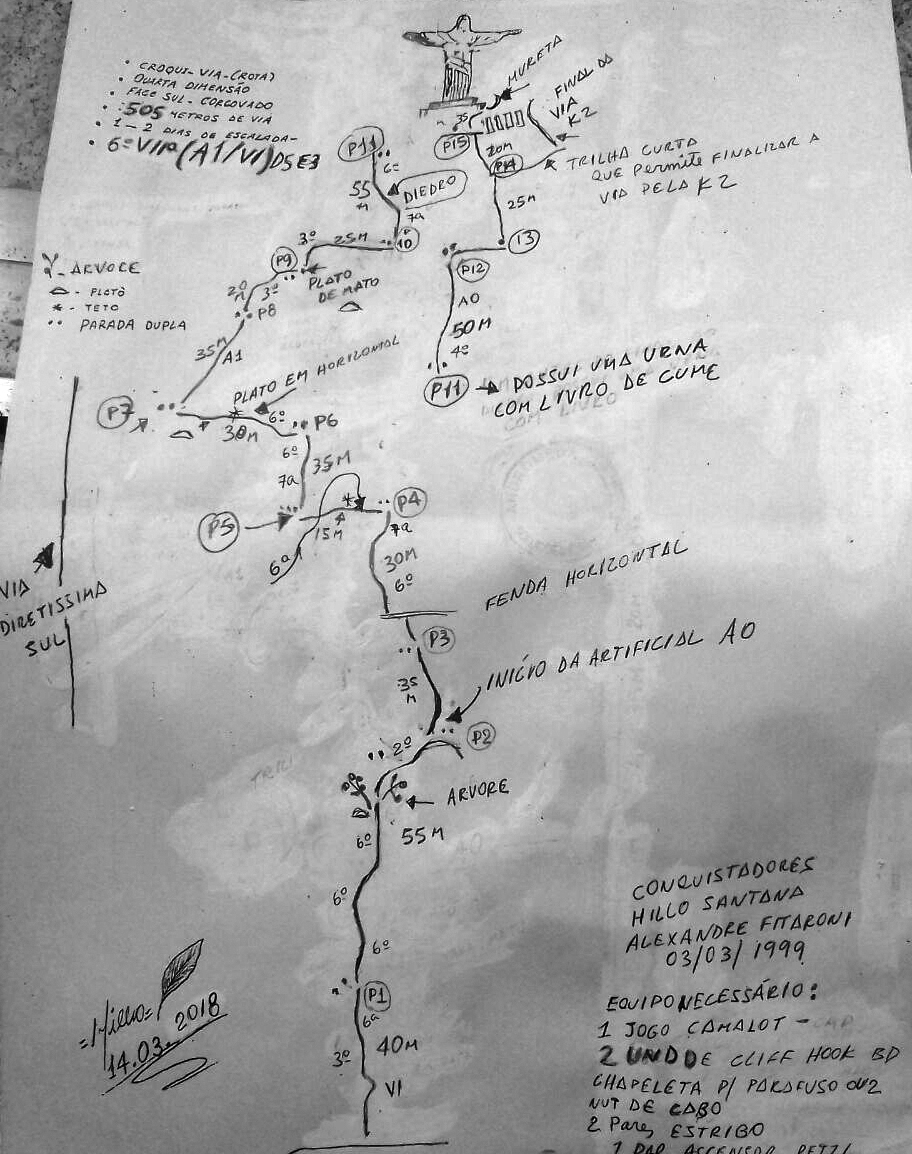 • CROQUI-VIA-(ROTA)
• QUARTA DIMENSÃO
• FACE SUL - CORCOVADO
• :505 METROS DE VIA
• 1-2 DIAS DE ESCALADA-
• 6º VIIa (A1/VI) D5 E3
- ARVORE
- PLATÔ
* - TETO
•• PARADA DUPLA
MURETA
FINAL DA
VIA
K2
P15
20M
P14
TRILHA CURTA
QUE PERMITE FINALIZAR A
VIA PELA K2
25M
13
P12
A0
50M
4º
P11 → POSSUI UMA URNA
COM LIVRO DE CUME
P11
6º
55
M
DIEDRO
7a
10
25M
3º
P9
PLATO
DE MATO
3º
20
M
P8
35M
A1
PLATO EM HORIZONTAL
P7
30M
6º
P6
6º
7a
35M
P5
15M
6º
P4
7a
30M
6º
FENDA HORIZONTAL
VIA
DIRETISSIMA
SUL
P3
35
M
INICIO DA ARTIFICIAL A0
P2
2º
ARVORE
6º
55M
6º
6º
P1
6a
3º
40M
VI
=Hillo=
14.03.2018
CONQUISTADORES
HILLO SANTANA
ALEXANDRE FITARONI
03/03/1999
EQUIPO NECESSÁRIO:
1 JOGO CAMALOT -
2 UND DE CLIFF HOOK BD
CHAPELETA P/ PARAFUSO OU 2
NUT DE CABO
2 Pares ESTRIBO
1 PAR ASCENSOR PETZL